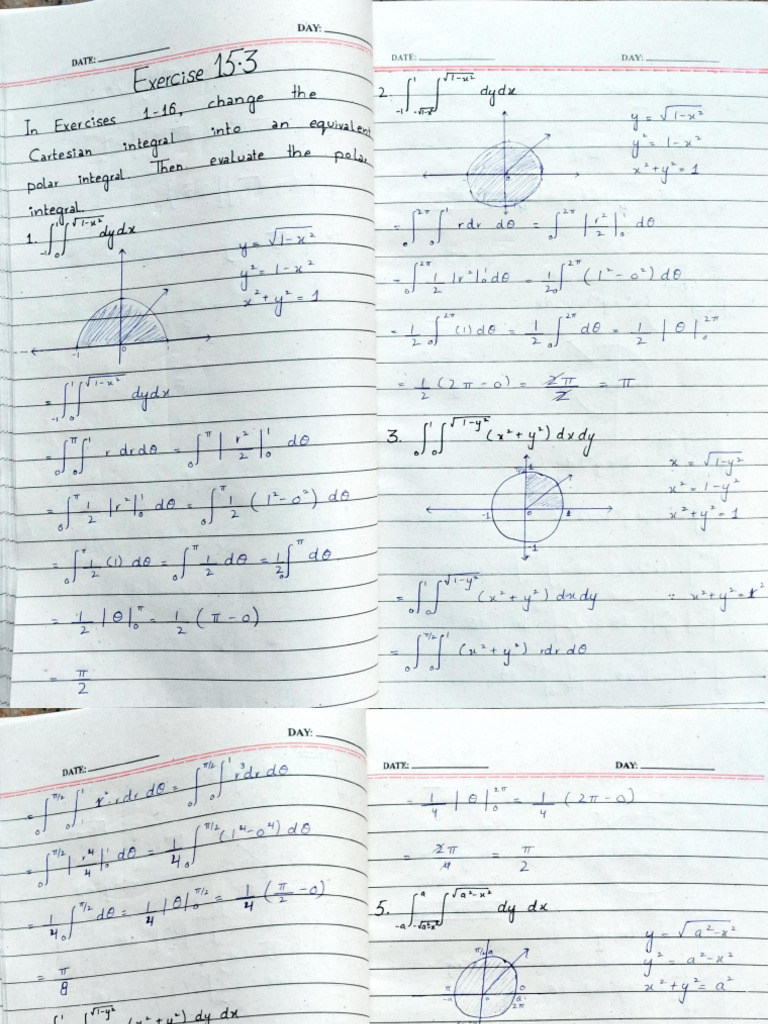 DAY: ______
DATE: ______
Exercise 15.3
In Exercises 1-16, change the
Cartesian integral into an equivalent
polar integral. Then evaluate the polar
integral.
1. ∫₋₁¹ ∫₀^√(1-x²) dydx
y = √(1-x²)
y² = 1-x²
x²+y² = 1
-1 0 1
= ∫₋₁¹ ∫₀^√(1-x²) dydx
= ∫₀^π ∫₀¹ r drdθ = ∫₀^π |r²/2|₀¹ dθ
= ∫₀^π 1/2 |r²|₀¹ dθ = ∫₀^π 1/2 (1²-0²) dθ
= ∫₀^π 1/2 (1) dθ = ∫₀^π 1/2 dθ = 1/2 ∫₀^π dθ
= 1/2 |θ|₀^π = 1/2 (π-0)
= π/2
DATE: ______ DAY: ______
2. ∫₋₁¹ ∫_-√(1-x²)^√(1-x²) dydx
y = √(1-x²)
y² = 1-x²
x²+y² = 1
0
= ∫₀^2π ∫₀¹ rdr dθ = ∫₀^2π |r²/2|₀¹ dθ
= ∫₀^2π 1/2 |r²|₀¹ dθ = 1/2 ∫₀^2π (1²-0²) dθ
= 1/2 ∫₀^2π (1) dθ = 1/2 ∫₀^2π dθ = 1/2 |θ|₀^2π
= 1/2 (2π-0) = 2π/2 = π
3. ∫₀¹ ∫₀^√(1-y²) (x²+y²) dxdy
x = √(1-y²)
x² = 1-y²
x²+y² = 1
1
-1 0 1
-1
= ∫₀¹ ∫₀^√(1-y²) (x²+y²) dxdy ∵ x²+y² = r²
= ∫₀^π/2 ∫₀¹ (x²+y²) rdr dθ
DAY: ______
DATE: ______
= ∫₀^π/2 ∫₀¹ r² rdr dθ = ∫₀^π/2 ∫₀¹ r³dr dθ
= ∫₀^π/2 |r⁴/4|₀¹ dθ = 1/4 ∫₀^π/2 (1⁴-0⁴) dθ
= 1/4 ∫₀^π/2 dθ = 1/4 |θ|₀^π/2 = 1/4 (π/2 -0)
= π/8
√(1-y²) (x²+y²) dy dx
DATE: ______ DAY: ______
= 1/4 |θ|₀^2π = 1/4 (2π-0)
= 2π/4 = π/2
5. ∫₋ₐ^a ∫_-√(a²-x²)^√(a²-x²) dy dx
y = √(a²-x²)
y² = a²-x²
x²+y² = a²
π/2 a
π 0 0
-a a
2π